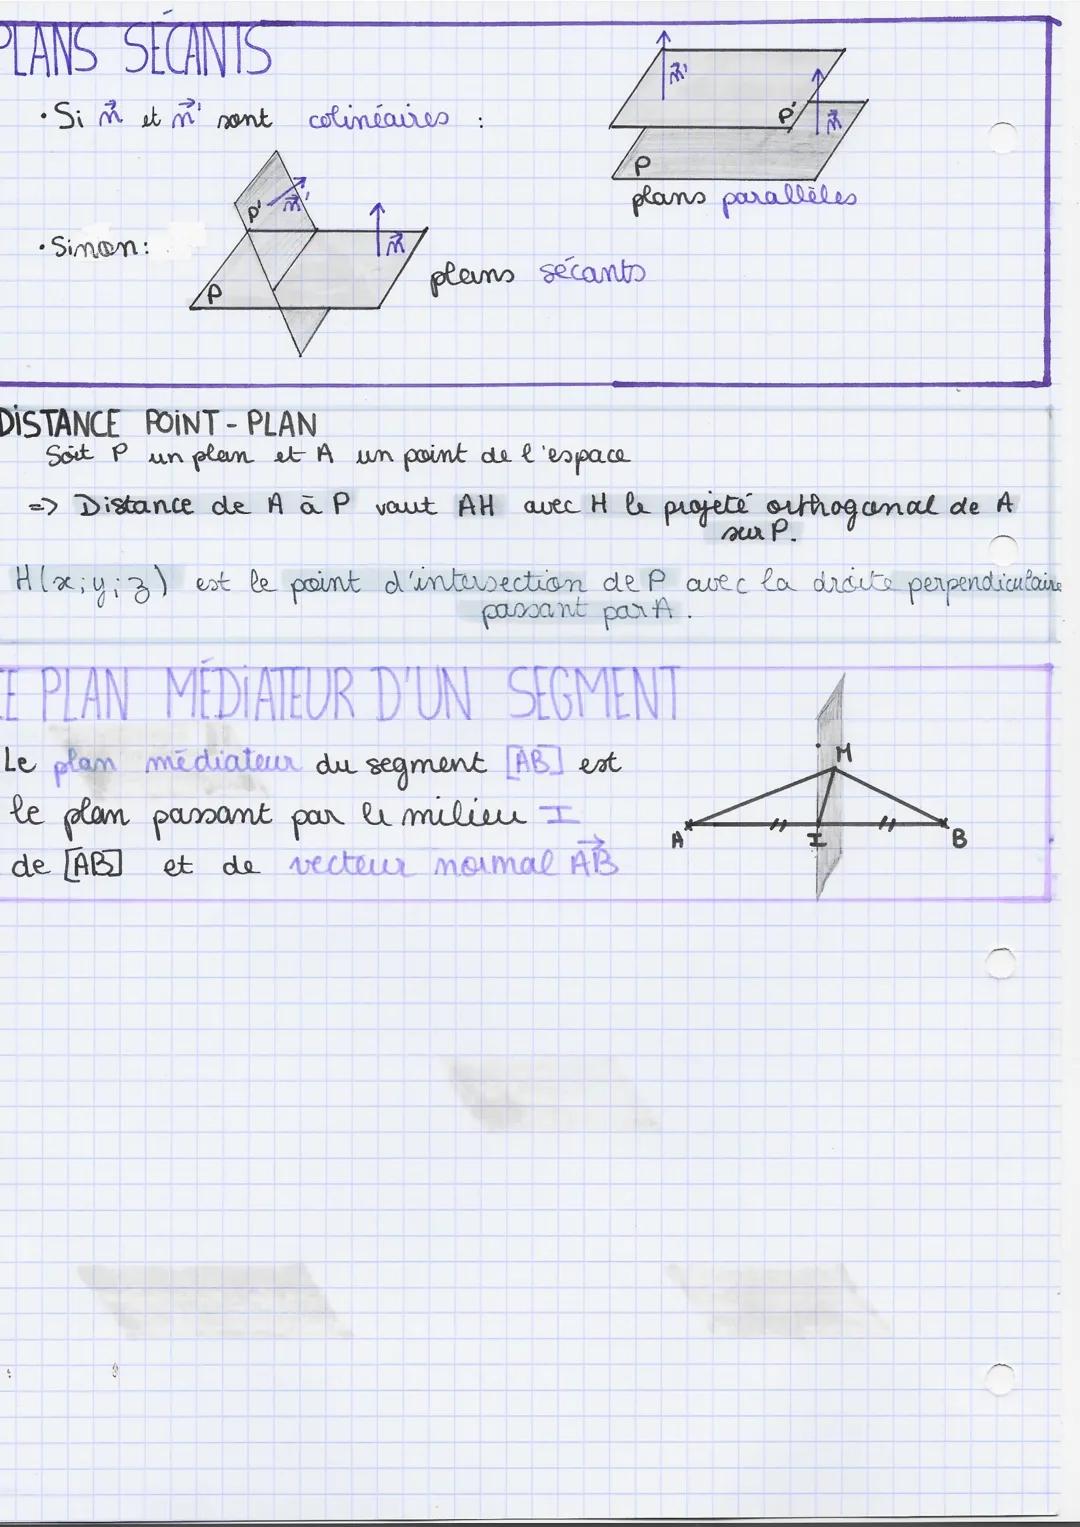 PLANS SÉCANTS
• Si n⃗ et n⃗' sont colinéaires :
n⃗'
P'
n⃗
P
plans parallèles
• Sinon :
P'
n⃗'
n⃗
P
plans sécants
DISTANCE POINT - PLAN
Soit P un plan et A un point de l'espace
=> Distance de A à P vaut AH avec H le projeté orthogonal de A
sur P.
H(x;y;z) est le point d'intersection de P avec la droite perpendiculaire
passant par A.
LE PLAN MÉDIATEUR D'UN SEGMENT
Le plan médiateur du segment [AB] est
le plan passant par le milieu I
de [AB] et de vecteur normal AB⃗
M
A
I
B